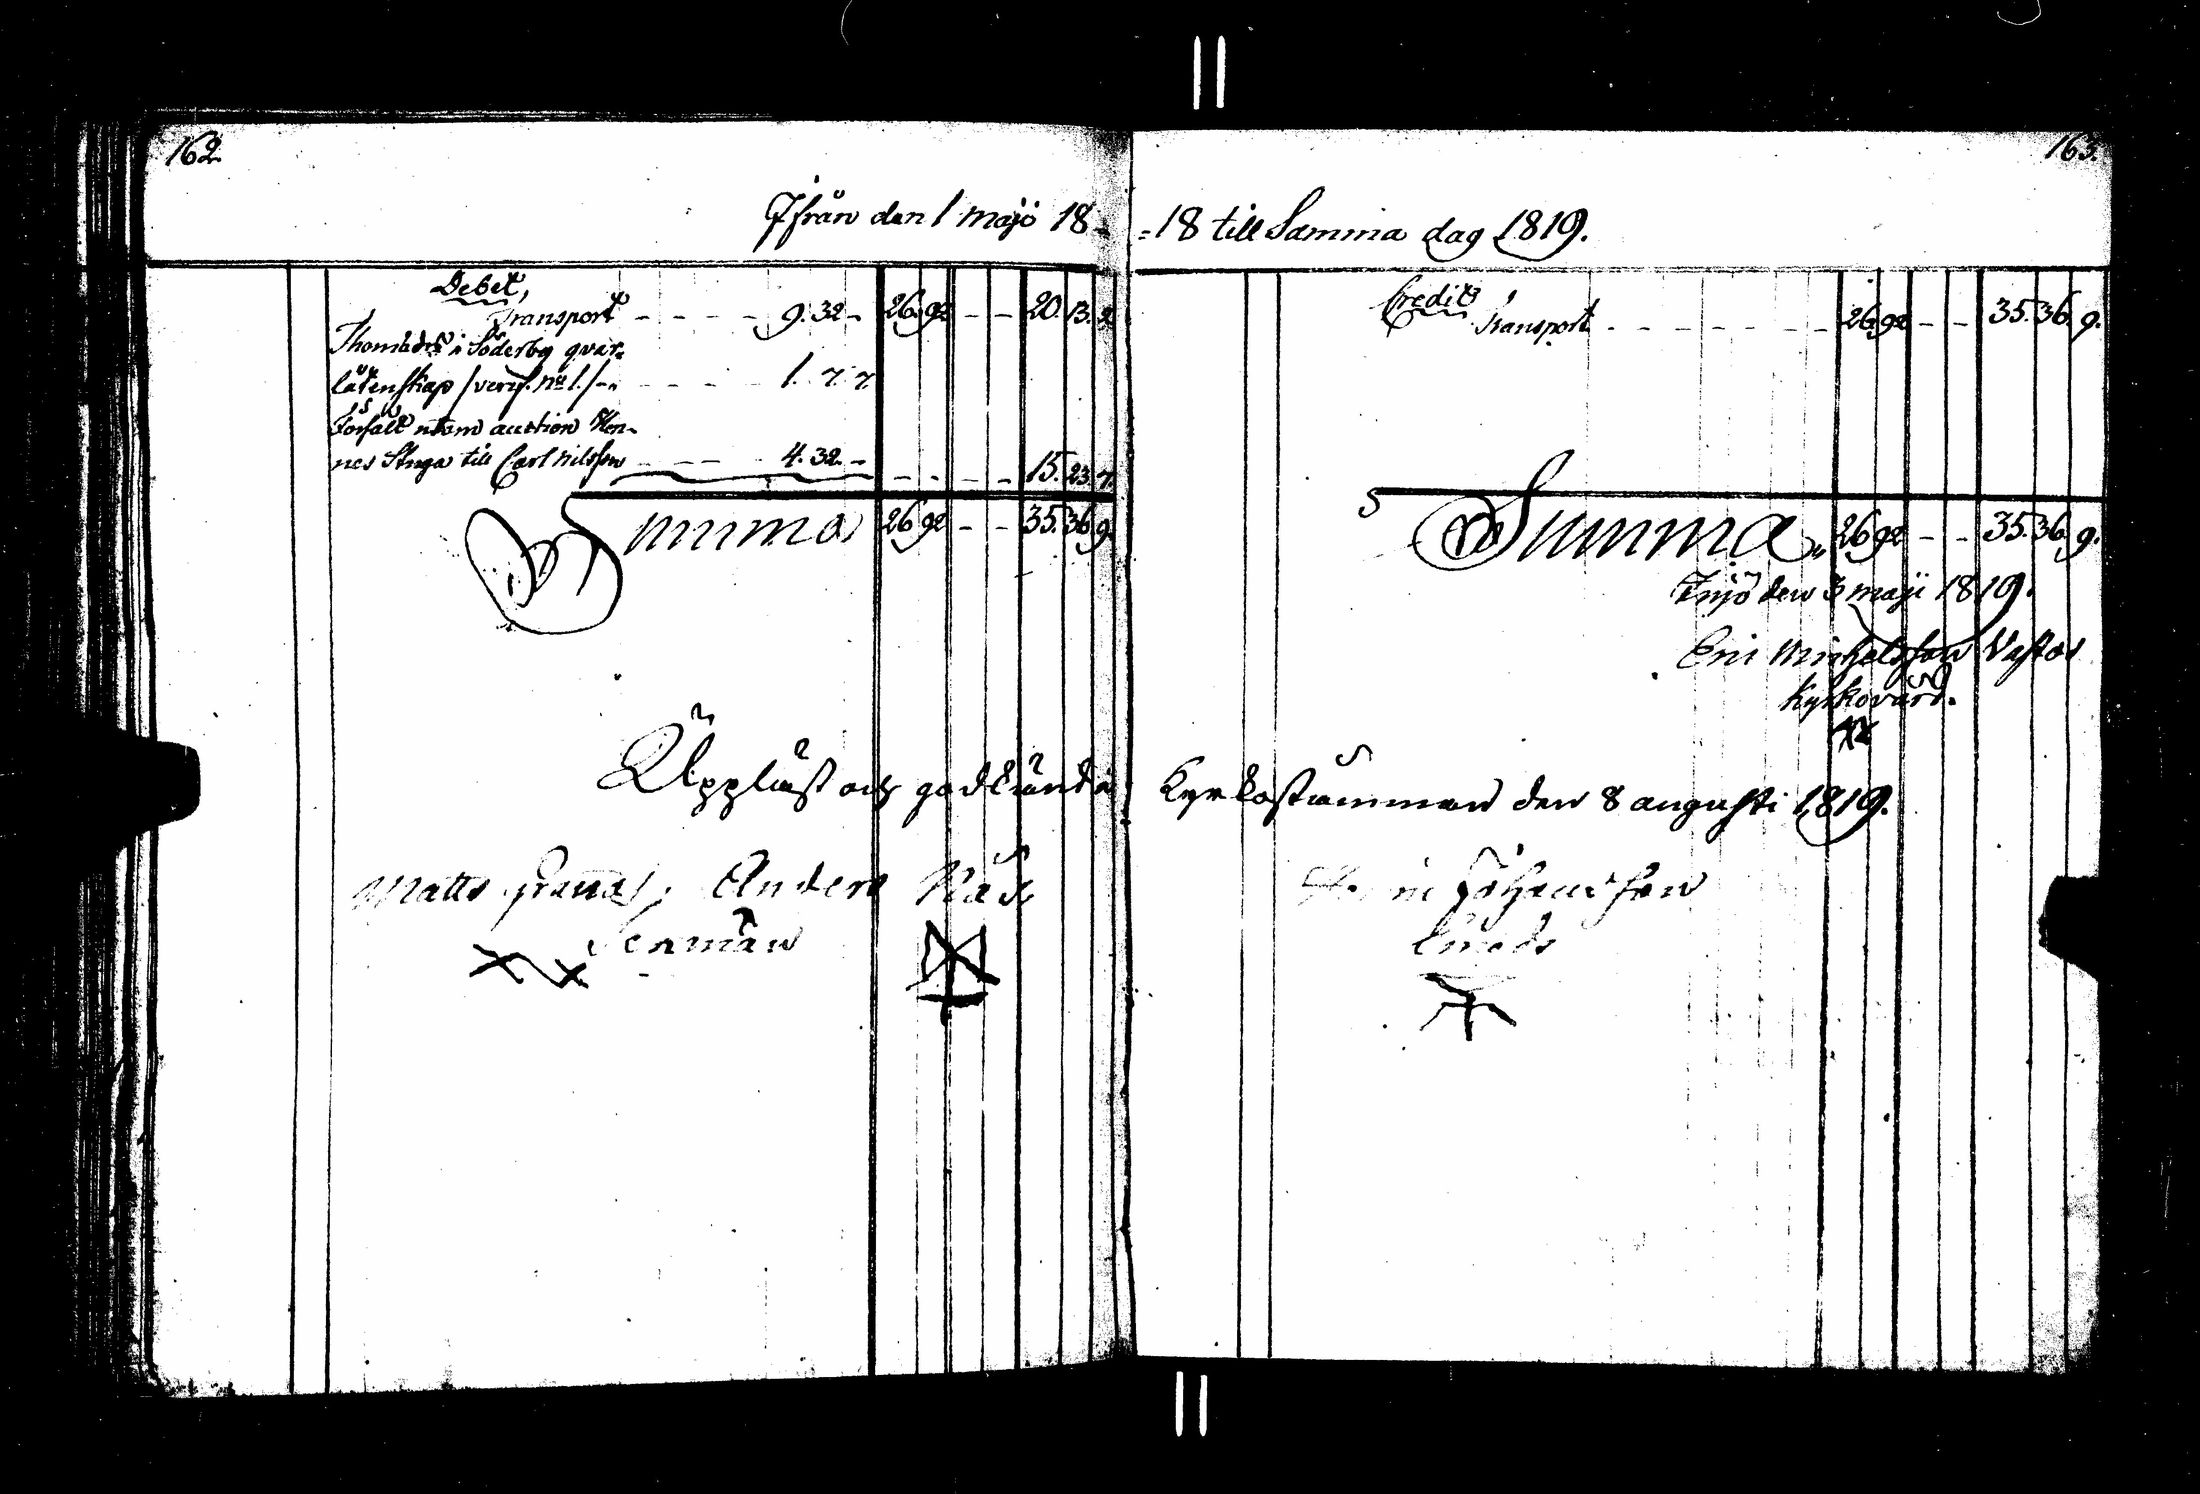 162.
Ifrån den 1 maji 18=
Debet,
Transport 9. 32 - 26 92 - - 20. 13. 2
i Söderby qvar=
låtenskap /verif. No 1./ 1. 7. 7
Försålt utom auction Hen=
nes Stuga till Carl Nilsson 4. 32. - - - 15. 23. 7.
Summa 26 92 - - 35. 36 9.
Uppläst och godkänd i
Matts Anders Näs
163.
=18 till Samma dag 1819.
Credit
Transport 26 92 - - 35. 36. 9.
Summa 26 92 - - 35. 36. 9.
Injö den 3 maji 1819.
Eric Michelsson
Kyrkovärd.
Kyrkostämman den 8 augusti 1819.
Johansson